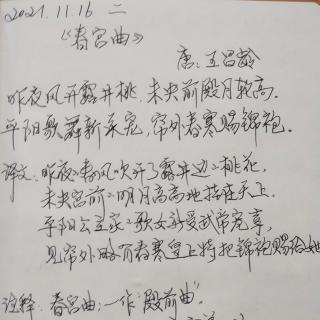 2021.11.16 二
《春宫曲》
唐:王昌龄
昨夜风开露井桃,未央前殿月轮高.
平阳歌舞新承宠,帘外春寒赐锦袍.
译文:昨夜春风吹开了露井边桃花,
未央宫前明月高高地挂在天上.
平阳公主家歌女新受武帝宠幸,
见帘外略有春寒皇上特把锦袍赐给她
注释:春宫曲:一作"殿前曲".